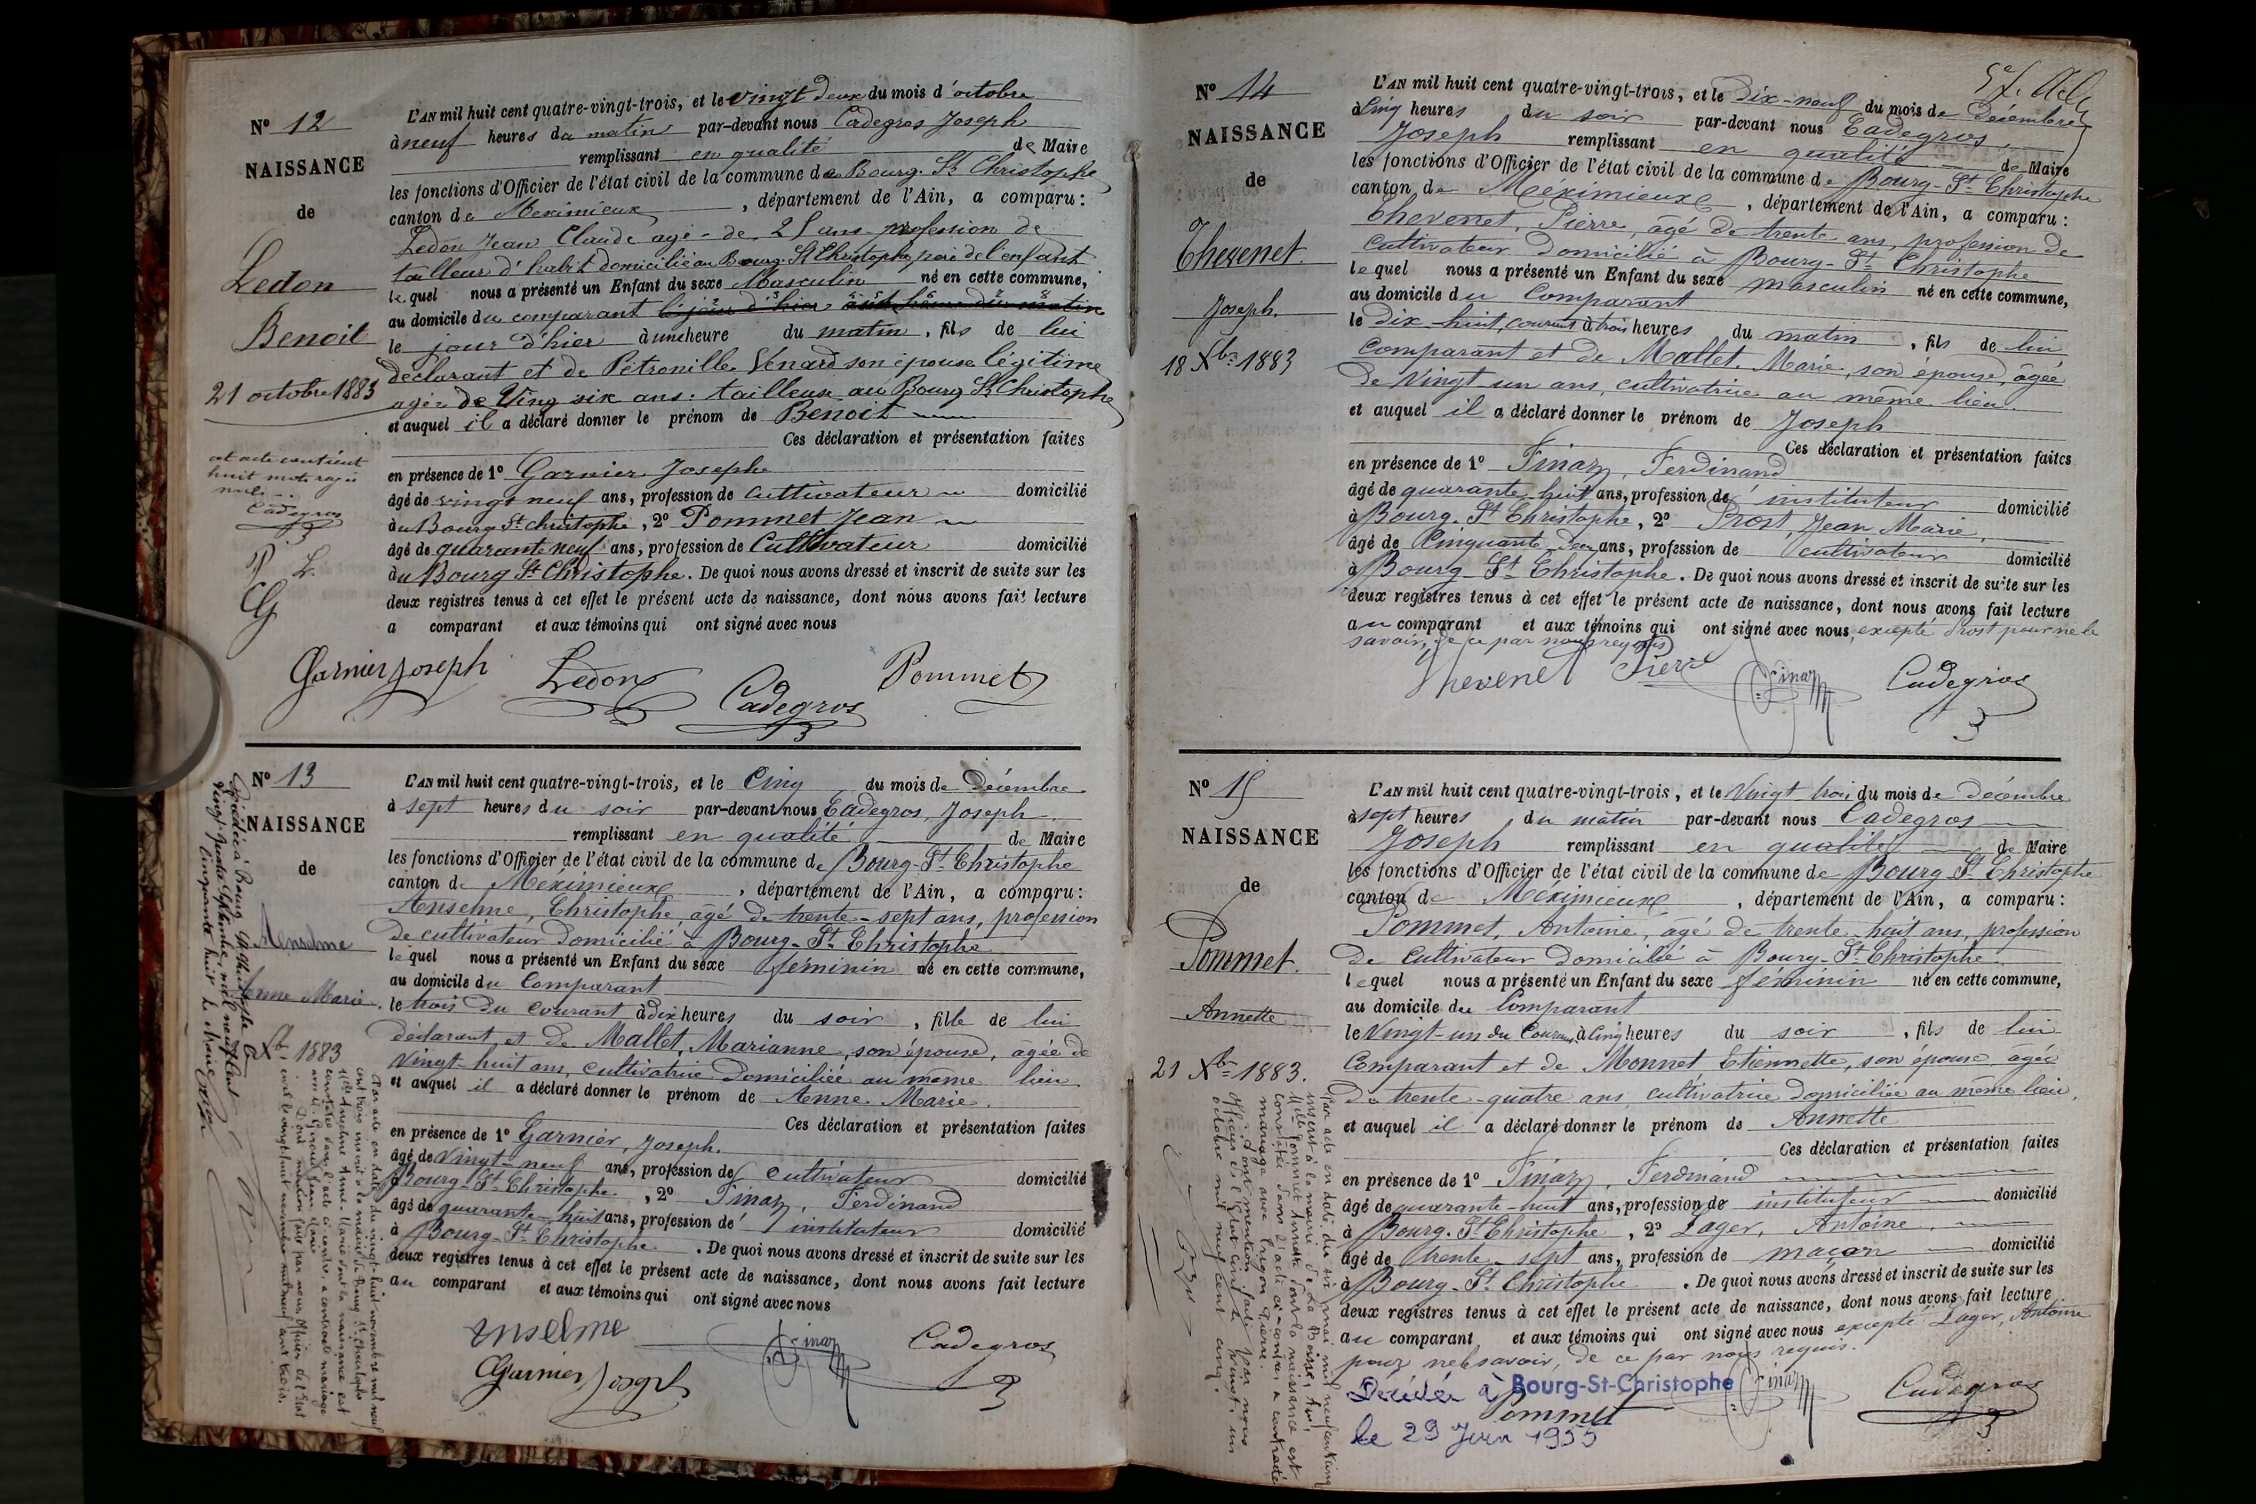 Nº 12
NAISSANCE
de
Ledon
Benoit
21 octobre 1883
cet acte contient
huit mots rayés
nuls
Cadegros
P. L.
CG
L'AN mil huit cent quatre-vingt-trois, et le vingt deux du mois d'octobre
à neuf heures du matin par-devant nous Cadegros Joseph
remplissant en qualité de Maire
les fonctions d'Officier de l'état civil de la commune de Bourg-St Christophe
canton de Meximieux, département de l'Ain, a comparu:
Ledon Jean Claude agé de 25 ans profession de
tailleur d'habit domicilié au Bourg St Christophe, père de l'enfant
lequel nous a présenté un Enfant du sexe Masculin né en cette commune,
au domicile du comparant le jour d'hier à une heure du matin
le jour d'hier à une heure du matin, fils de lui
déclarant et de Pétronille Venard son épouse légitime
agée de Ving six ans: tailleuse au Bourg St Christophe
et auquel il a déclaré donner le prénom de Benoit
Ces déclaration et présentation faites
en présence de 1º Garnier Joseph
âgé de vingt neuf ans, profession de cultivateur domicilié
au Bourg St Christophe, 2º Pommet Jean
âgé de quarante neuf ans, profession de Cultivateur domicilié
au Bourg St Christophe. De quoi nous avons dressé et inscrit de suite sur les
deux registres tenus à cet effet le présent acte de naissance, dont nous avons fait lecture
a comparant et aux témoins qui ont signé avec nous
Garnier Joseph Ledon Cadegros Pommet
Nº 13
NAISSANCE
de
Anselme
Anne Marie
Xbre 1883
Décédée à Bourg St Christophe le
vingt quatre Septembre mil neuf cent
cinquante huit Le Maire
Par acte en date du vingt-huit novembre mil neuf
cent trois inscrit à la mairie de Bourg St Christophe
Mlle Anselme Anne-Marie dont la naissance est
constatée dans l'acte ci-contre, a contracté mariage
avec Giroud Jean Marie
Dont mention faite par nous, Officier de l'Etat
civil le vingt-huit novembre mil neuf cent trois.
L'AN mil huit cent quatre-vingt-trois, et le Cinq du mois de Décembre
à sept heures du soir par-devant nous Cadegros, Joseph
remplissant en qualité de Maire
les fonctions d'Officier de l'état civil de la commune de Bourg-St-Christophe
canton de Méximieux, département de l'Ain, a comparu:
Anselme, Christophe, âgé de trente-sept ans, profession
de cultivateur domicilié à Bourg-St-Christophe
lequel nous a présenté un Enfant du sexe féminin né en cette commune,
au domicile du Comparant
le trois du courant à dix heures du soir, fille de lui
déclarant et de Mallet, Marianne, son épouse, âgée de
vingt-huit ans, cultivatrice domiciliée au même lieu
et auquel il a déclaré donner le prénom de Anne Marie.
Ces déclaration et présentation faites
en présence de 1º Garnier, Joseph.
âgé de vingt-neuf ans, profession de cultivateur domicilié
à Bourg-St-Christophe, 2º Finaz, Ferdinand
âgé de quarante-huit ans, profession de instituteur domicilié
à Bourg-St-Christophe. De quoi nous avons dressé et inscrit de suite sur les
deux registres tenus à cet effet le présent acte de naissance, dont nous avons fait lecture
au comparant et aux témoins qui ont signé avec nous
Anselme Finaz Cadegros
Garnier Joseph
Nº 14
NAISSANCE
de
Thevenet.
Joseph.
18 Xbre 1883
L'AN mil huit cent quatre-vingt-trois, et le Dix-neuf du mois de Décembre
à cinq heures du soir par-devant nous Cadegros,
Joseph remplissant en qualité de Maire
les fonctions d'Officier de l'état civil de la commune de Bourg-St-Christophe
canton de Meximieux, département de l'Ain, a comparu:
Thevenet, Pierre, âgé de trente ans, profession de
cultivateur domicilié à Bourg-St-Christophe
lequel nous a présenté un Enfant du sexe masculin né en cette commune,
au domicile du Comparant
le dix-huit, courant à trois heures du matin, fils de lui
comparant et de Mallet, Marie, son épouse, âgée
de vingt un ans, cultivatrice au même lieu.
et auquel il a déclaré donner le prénom de Joseph
Ces déclaration et présentation faites
en présence de 1º Finaz, Ferdinand
âgé de quarante-huit ans, profession de instituteur domicilié
à Bourg-St-Christophe, 2º Prost, Jean Marie,
âgé de Cinquante-deux ans, profession de cultivateur domicilié
à Bourg-St-Christophe. De quoi nous avons dressé et inscrit de suite sur les
deux registres tenus à cet effet le présent acte de naissance, dont nous avons fait lecture
au comparant et aux témoins qui ont signé avec nous, excepté Prost pour ne le
savoir, de ce par nous requis
Thevenet Pierre Finaz Cadegros
Nº 15
NAISSANCE
de
Pommet.
Annette
21 Xbre 1883.
Par acte en date du six mai mil neuf cent cinq
inscrit à la mairie de La Boisse, Ain,
Mlle Pommet Annette dont la naissance est
constatée dans l'acte ci-contre, a contracté
mariage avec Pierre.
Dont mention faite par nous
Officier de l'Etat civil le vingt un
octobre mil neuf cent cinq.
L'AN mil huit cent quatre-vingt-trois, et le Vingt-trois du mois de décembre
à sept heures du matin par-devant nous Cadegros
Joseph remplissant en qualité de Maire
les fonctions d'Officier de l'état civil de la commune de Bourg-St-Christophe
canton de Méximieux, département de l'Ain, a comparu:
Pommet, Antoine, âgé de trente-huit ans, profession
de cultivateur domicilié à Bourg-St-Christophe.
lequel nous a présenté un Enfant du sexe féminin né en cette commune,
au domicile du Comparant
le Vingt-un du Courant, à Cinq heures du soir, fils de lui
comparant et de Monnet Etiennette, son épouse âgée
de trente-quatre ans, cultivatrice domiciliée au même lieu.
et auquel il a déclaré donner le prénom de Annette
Ces déclaration et présentation faites
en présence de 1º Finaz, Ferdinand
âgé de quarante-huit ans, profession de instituteur domicilié
à Bourg-St-Christophe, 2º Lager, Antoine,
âgé de trente-sept ans, profession de maçon domicilié
à Bourg-St-Christophe. De quoi nous avons dressé et inscrit de suite sur les
deux registres tenus à cet effet le présent acte de naissance, dont nous avons fait lecture
au comparant et aux témoins qui ont signé avec nous excepté Lager, Antoine
pour ne le savoir, de ce par nous requis.
Décédée à Bourg-St-Christophe Finaz Cadegros
Pommet
le 29 Juin 1955